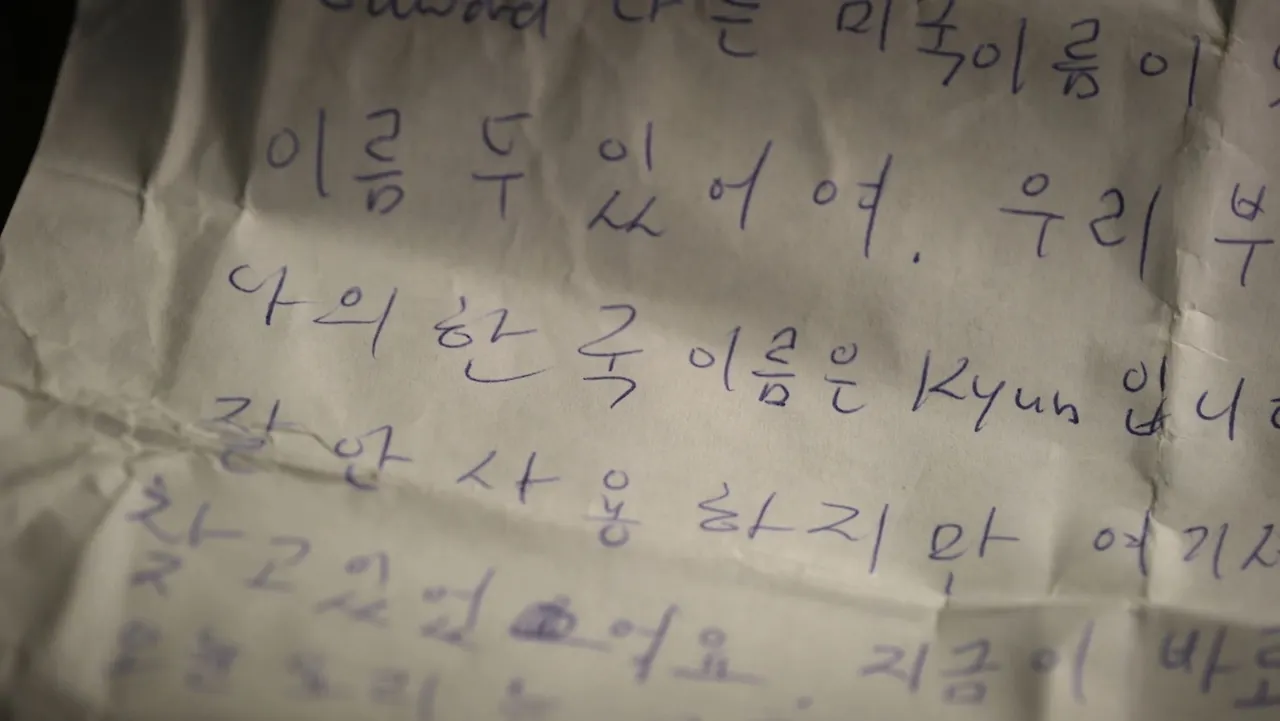 나는 미국이름이
이름 두 있어여. 우리 부
나의 한국 이름은 Kyun 입니
잘 안 사용 하지만 여기서
찾고 있었어요. 지금이 바로